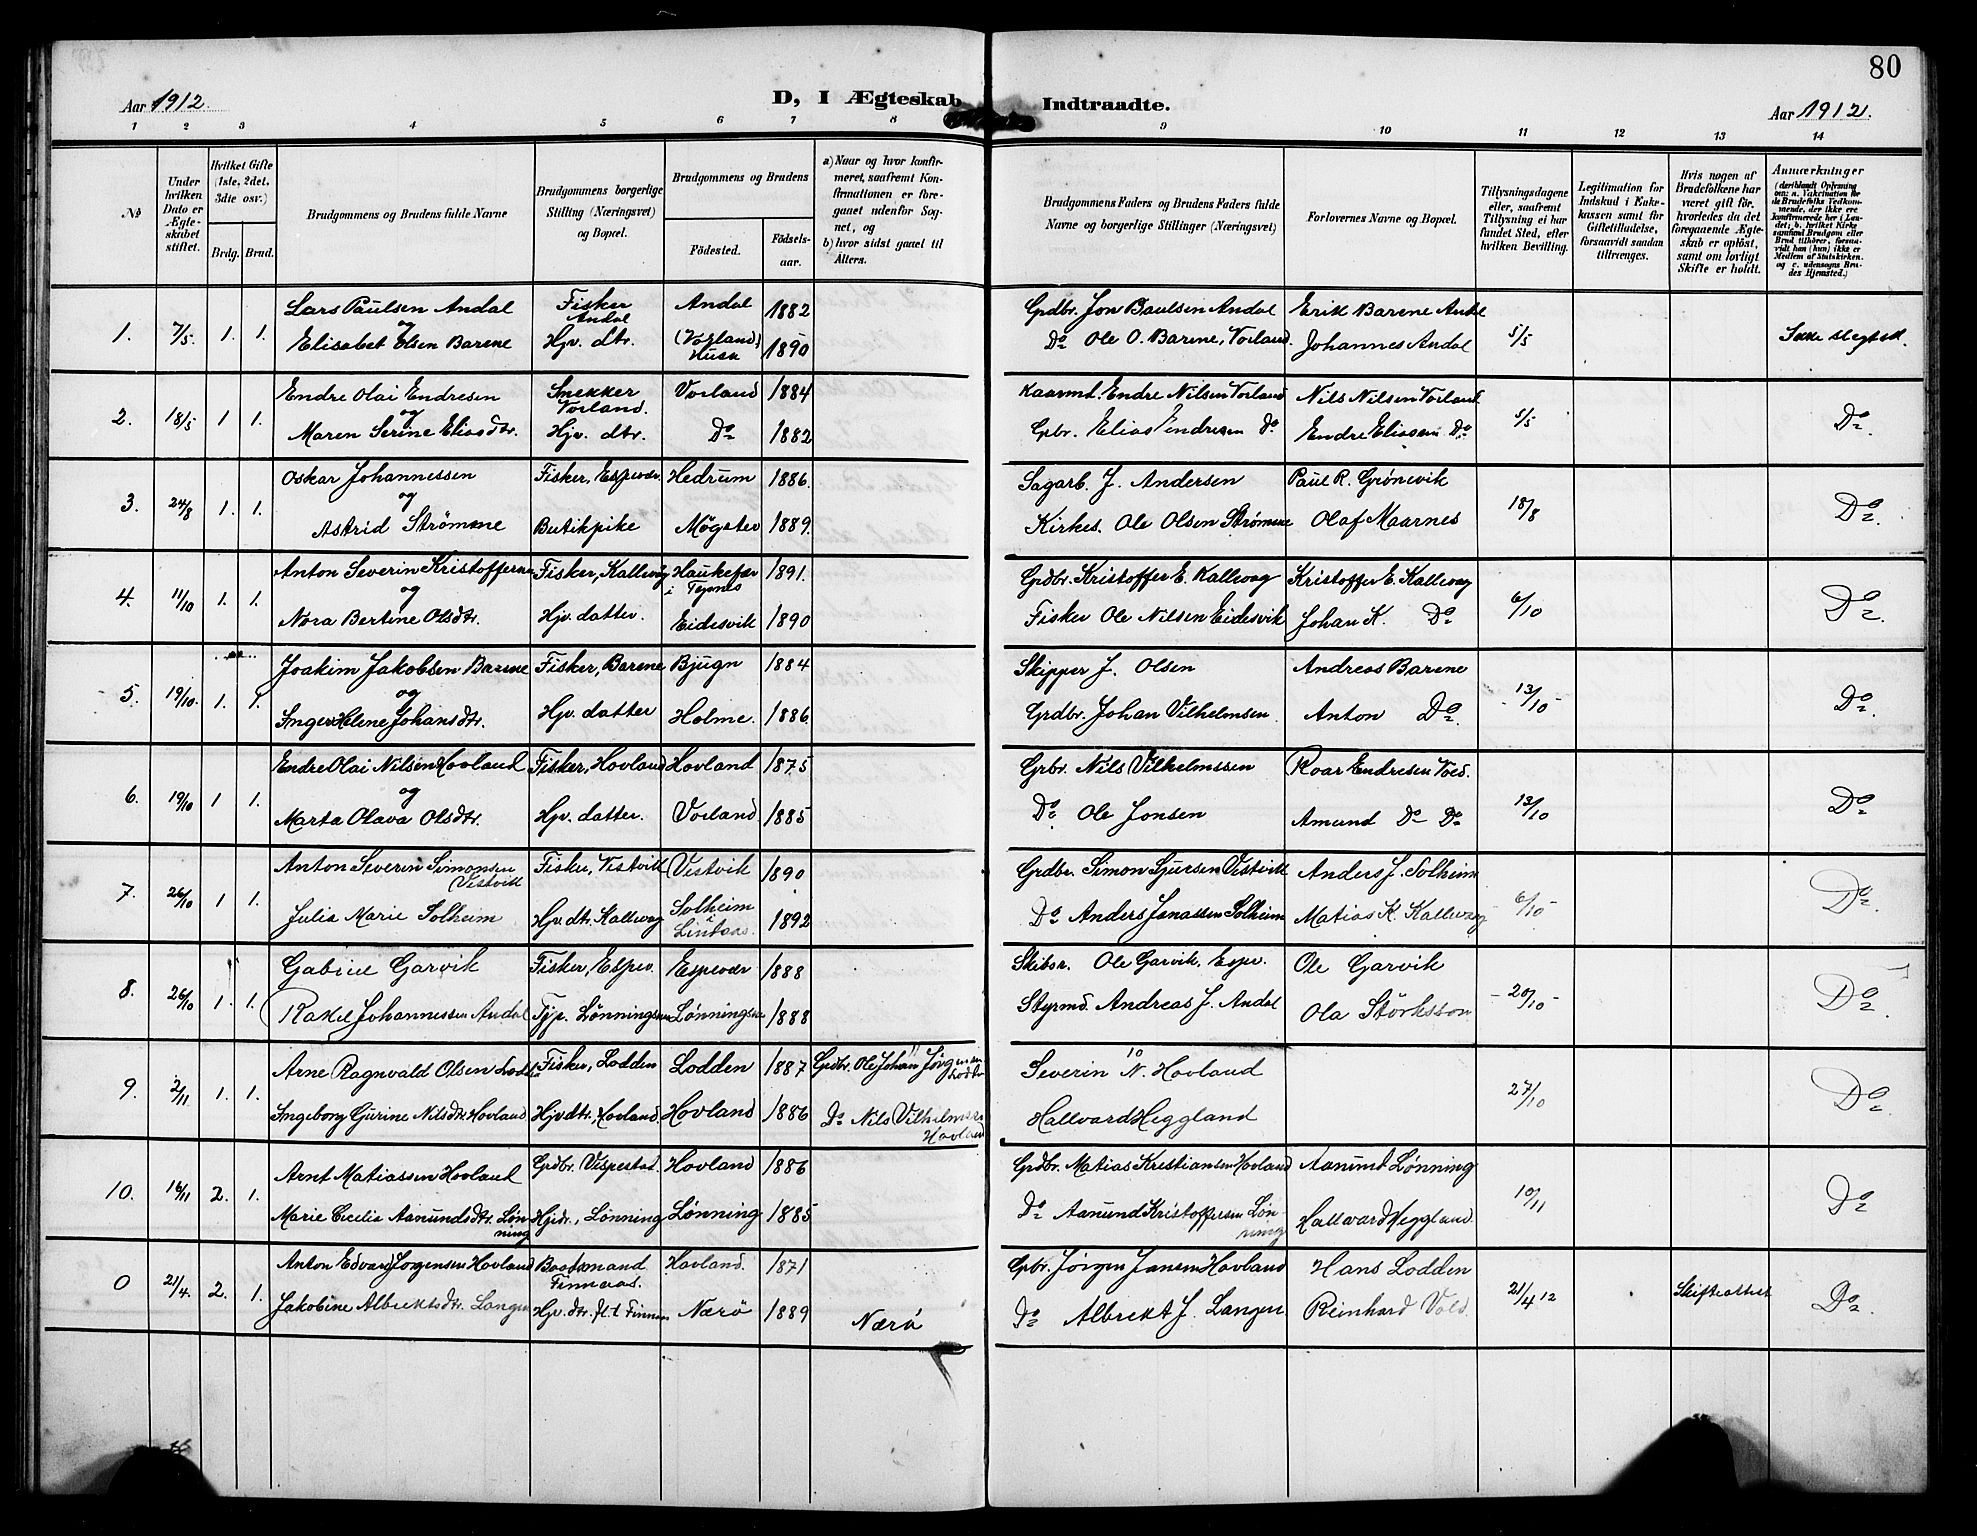 80
Aar 1912.
D, I Ægteskab Indtraadte.
Aar 1912.
1 2 3 4 5 6 7 8 9 10 11 12 13 14
No
Under hvilken Dato er Ægteskabet stiftet.
Hvilket Gifte (1ste, 2det, 3die osv.)
Brdg. Brud.
Brudgommens og Brudens fulde Navne
Brudgommens borgerlige Stilling (Næringsvei) og Bopæl.
Brudgommens og Brudens
Fødested.
Fødselsaar.
a) Naar og hvor konfirmeret, saafremt Konfirmationen er foregaaet udenfor Sognet, og
b) hvor sidst gaaet til Alters.
Brudgommens Faders og Brudens Faders fulde Navne og borgerlige Stillinger (Næringsvei)
Forlovernes Navne og Bopæl.
Tillysningsdagene eller, saafremt Tillysning ei har fundet Sted, efter hvilken Bevilling.
Legitimation for Indskud i Enkekassen samt for Giftetilladelse, forsaavidt saadan tiltrænges.
Hvis nogen af Brudefolkene har været gift før, hvorledes da det foregaaende Ægteskab er opløst, samt om lovligt Skifte er holdt.
Anmærkninger
(deriblandt Oplysning om: a. Vakcination for de Brudefolks Vedkommende, der ikke ere konfirmerede her i Landet; b. hvilket Kirkesamfund Brudgom eller Brud tilhører, forsaavidt han (hun) ikke er Medlem af Statskirken, og c. udensogns Brudes Hjemsted.)
1. 7/5. 1. 1. Lars Paulsen Andal Fisker Andal Andal 1882 Grdbr. Jon Paulsen Andal Erik Barene 5/5 Ikke slegtsk.
og
Elisabet Olsen Barene Hjv. dtr. (Vorland) Husa 1890 Do Ole O. Barene, Vorland. Johannes Andal
2. 18/5 1 1. Endre Olai Endresen Snekker Vorland. Vorland 1884 Kaarmd. Endre Nilsen Vorland Nils Nilsen Vorland. 5/5 Do.
og
Maren Serine Eliasdtr. Hjv. dtr. Do 1882 Grbr. Elias Endresen Do Endre Eliasen Do
3. 24/8 1. 1. Oskar Johannessen Fisker, Espevær. Hedrum 1886. Sagarb. J. Andersen Paul R. Grønevik 18/8 Do.
og
Astrid Strömme Butikpike Møgster 1889. Kirkes. Ole Olsen Strømme Olaf Maarnes
4. 11/10 1. 1. Anton Severin Kristoffersen Fisker, Kallevåg Haukefær i Tysnes 1891. Grdbr. Kristoffer E. Kallevag Kristoffer E. Kallevag 6/10 Do.
og
Nora Bertine Olsdtr. Hjv. datter. Eidesvik 1890 Fisker Ole Nilsen Eidesvik Johan K. Do
5. 19/10. 1. 1. Joakim Jakobsen Barene Fisker, Barene Bjugn 1884 Skipper J. Olsen Andreas Barene 13/10 Do.
og
Inger Helene Johansdtr. Hjv. datter Holme. 1886. Grdbr. Johan Vilhelmsen. Anton Do.
6. 19/10 1 1. Endre Olai Nilsen Hovland Fisker, Hovland Hovland 1875 Grbr. Nils Vilhelmssen Roar Endresen 13/10 Do
og
Marta Olava Olsdtr. Hjv. datter. Vorland. 1885 Do Ole Jonsen Amund Do Do
7. 26/10 1 1. Anton Severin Simonsen Vestvik Fisker, Vestvik Vestvik 1890 Grdbr. Simon Sjursen Vestvik Anders J. Solheim 6/10 Do.
Julia Marie Solheim Hjv. dtr. Kallevag Solheim i Lindaas. 1892 Do Anders Jonassen Solheim Matias K. Kallevaag
8. 26/10 1. 1. Gabriel Garvik Fisker, Espev. Espevær 1888 Skibsr. Ole Garvik, Espev. Ole Garvik 20/10 Do.
Rakel Johannessen Andal Tjp. Lönningsh. Lønningsh. 1888 Styrmd. Andreas J. Andal Ola Störksson
9. 2/11 1. 1. Arne Ragnvald Olsen Lodden Fisker, Lodden Lodden 1887 Grdbr. Ole Johan Jørgensen Lodden Severin N. Hovland 27/10 Do.
Ingeborg Gurine Nilsdtr. Hovland Hjv dtr, Hovland. Hovland 1886 Do Nils Vilhelmsen Hovland Hallvard Heggland
10. 16/11 2. 1. Arnt Matiassen Hovland Grdbr. Vespestad. Hovland 1886 Grdbr. Matias Kristiansen Hovland Aamund Lønning 10/11 Do
Marie Cecilia Aamundsdtr. Lønning Hjv dr., Lönning Lønning 1885 Do Aamund Kristoffersen Lønning Hallvard Heggland.
0 21/4. 2. 1. Anton Edvard Jørgensen Hovland Baatsmand Finnaas. Hovland. 1871 Grbr. Jørgen Jansen Hovland Hans Lodden 21/4 12 Skifteattest Do
Jakobine Albrektsdtr. Langen Hjv. dtr. p.t. Finnaas Nærö 1889 Nærö Do Albrekt J. Langen Reinhard Vold